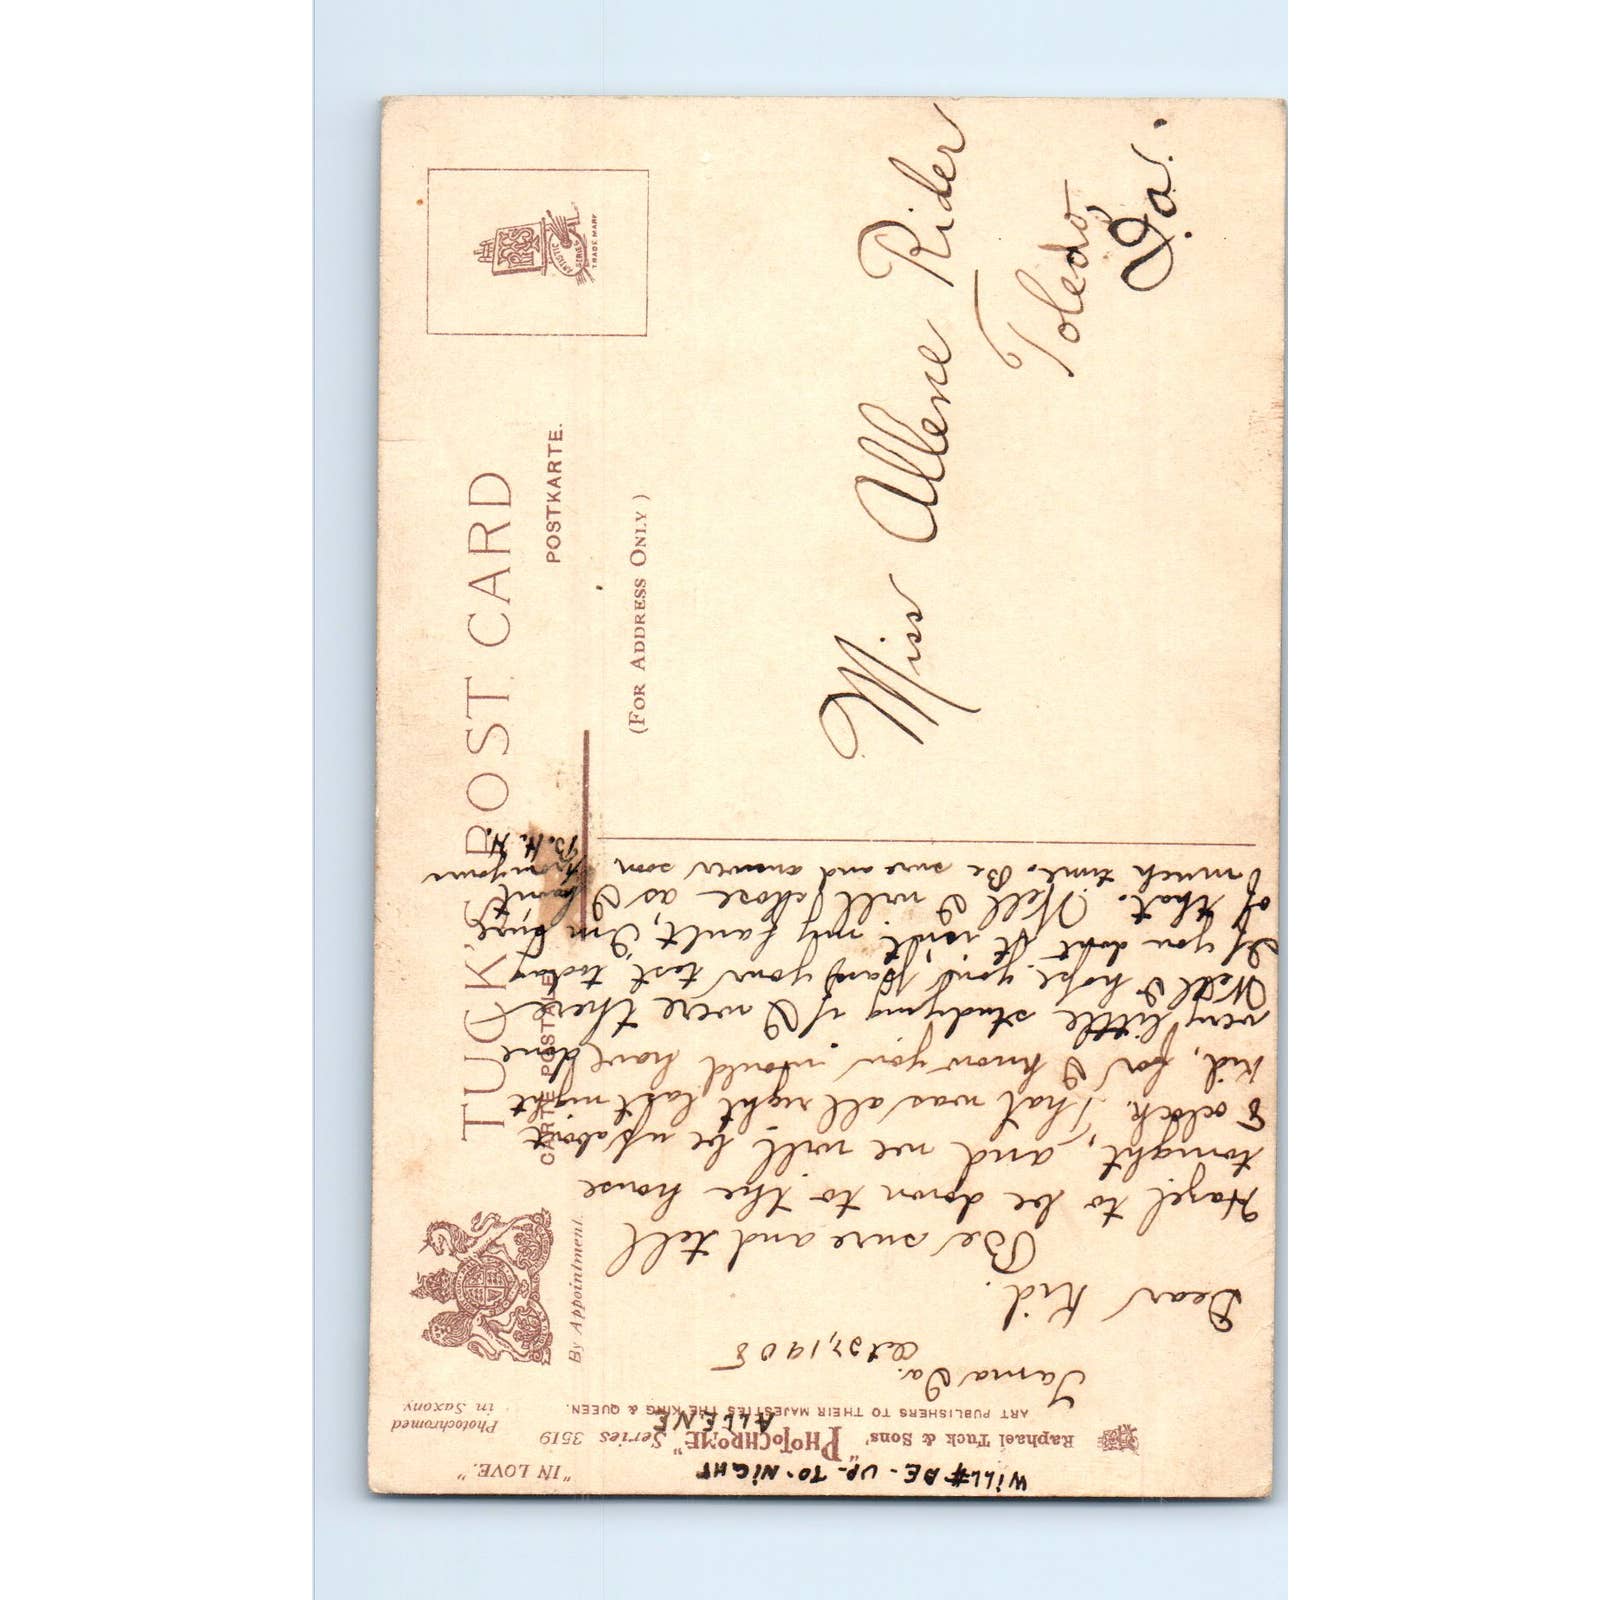 TUCK'S POST CARD
CARTE POSTALE
POSTKARTE.
(FOR ADDRESS ONLY)
By Appointment.
ARTISTIC
SERIES
TRADE MARK
Miss Allene Rider
Toledo,
Ia.
"IN LOVE."
Photochromed
in Saxony
Raphael Tuck & Sons' "PHOTOCHROME" Series 3519
ART PUBLISHERS TO THEIR MAJESTIES THE KING & QUEEN.
WILL BE-UP-TO-NIGHT
ALLENE
Tama Ia.
Oct 1908
Dear Kid.
Be sure and tell
Hazel to be down to the house
tonight, and we will be up about
8 oclock. That was all right last night
kid, for I know you would have done
very little studying if I were there
Well I hope you pass your test today
If you dont it isn't my fault, I'm sure
of that. Well I will close as I
haint
much time. Be sure and answer soon
From yours
B. H. H.